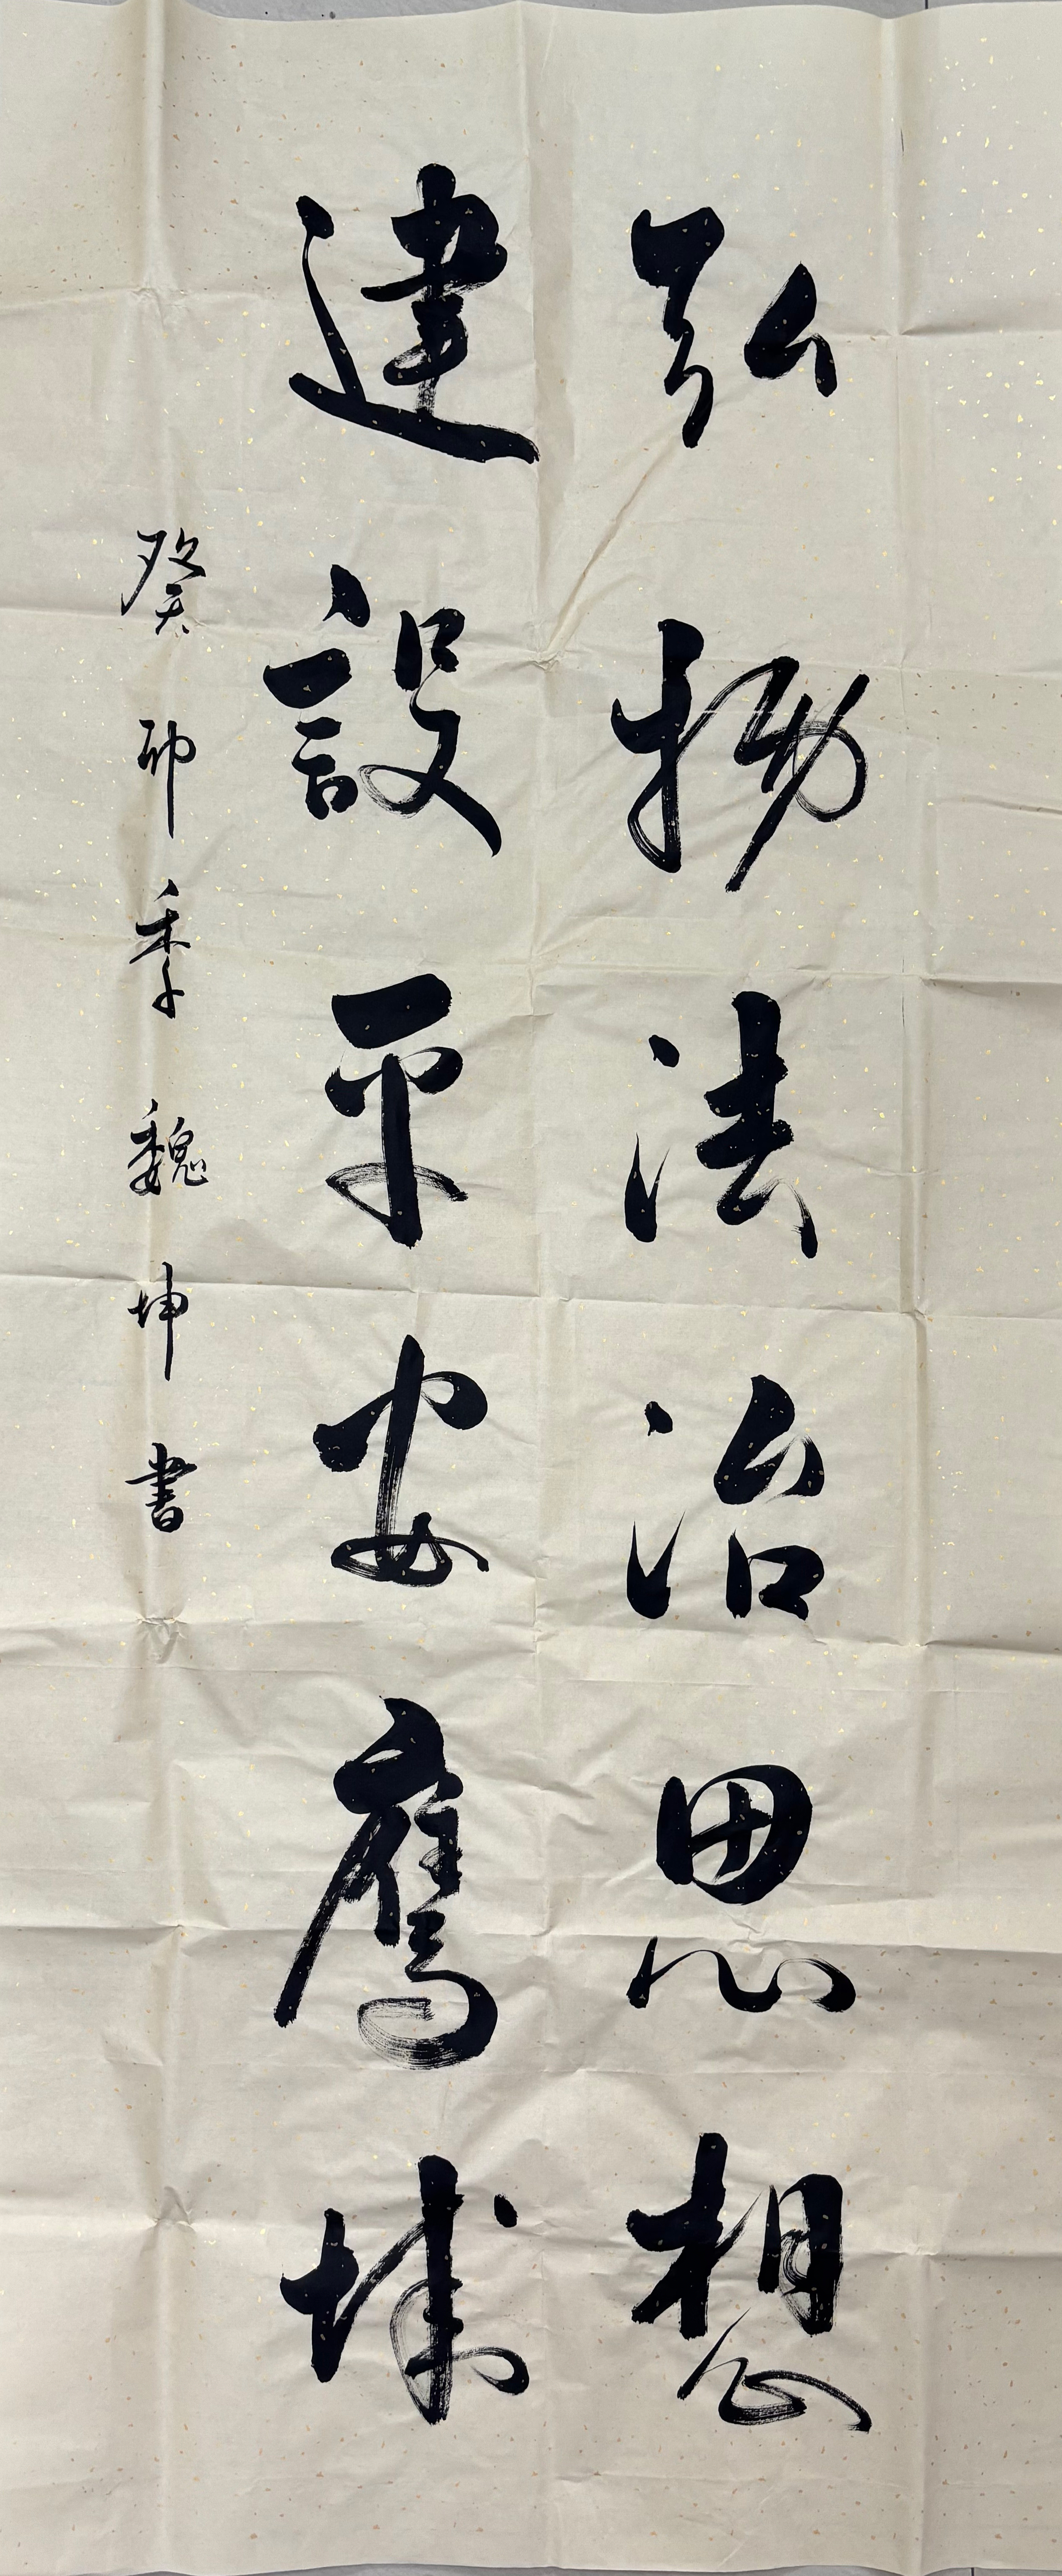 弘揚法治思想
建設平安鷹城
癸卯季魏坤書